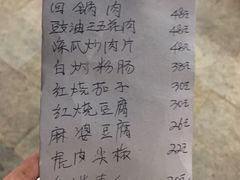 回锅肉 48元
豉油王五花肉 48元
凉瓜炒肉片 48元
白灼粉肠 38元
红烧茄子 30元
红烧豆腐 30元
麻婆豆腐 26元
虎皮尖椒 22元